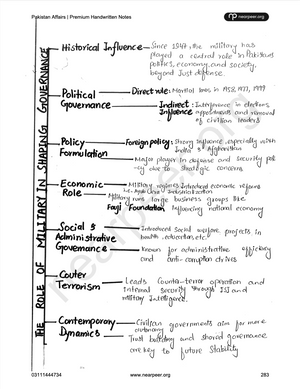 Pakistan Affairs | Premium Handwritten Notes
nearpeer.org
THE ROLE OF MILITARY IN SHAPING GOVERNANCE
Historical Influence – Since 1947, the military has
played a central role in Pakistan's
politics, economy, and society,
beyond just defense
Political Governance
Direct rule: Martial laws in 1958, 1977, 1999
Indirect Influence : Interference in elections,
appointments and removal
of civilian leaders
Policy Formulation
Foreign policy: Strong influence, especially with
India & Afghanistan
Major player in defense and security pol
-icy due to strategic concerns
Economic Role
Military regimes introduced economic reforms
Industrialization
Military runs large business groups like
Fauji Foundation, influencing national economy
Social & Administrative Governance
Introduced Social welfare projects in
health, education, etc.
Known for administrative efficiency
and anti-corruption drives
Couter Terrorism
Leads Counter-terror operation and
internal security through ISI and
military Intelligence.
Contemporary Dynamics
Civilian governments aim for more
autonomy
Trust building and shared governance
are key to future Stability
03111444734
www.nearpeer.org
283
nearpeer.org